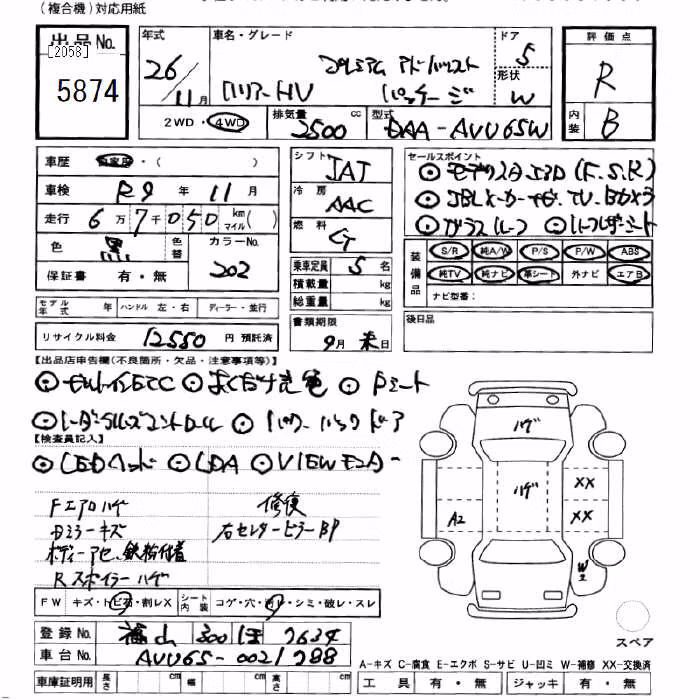 (複合機)対応用紙
出品No.
[2058]
5874
年式 26/11月
車名・グレード ハリアーHV プレミアム アドバンスト パッケージ
ドア 5
形状 W
評価点 R
内装 B
2WD・4WD
排気量 2500 cc
型式 DAA-AVU65W
車歴 自家用・( )
車検 R9年 11月
走行 6万7千050 km マイル( )
色 黒
色替
カラーNo. 202
保証書 有・無
モデル年式 年 ハンドル 左・右 ディーラー・並行
リサイクル料金 12550 円 預託済
シフト IAT
冷房 AAC
燃料 G
乗車定員 5名
積載量 kg
総重量 kg
書類期限 9月末日
セールスポイント
JBLメーカーナビ、TV、Bカメラ
ガラスルーフ
装備品 S/R 純A/W P/S P/W ABS
純TV 純ナビ 革シート 外ナビ エアB
ナビ型番:
後日品
【出品店申告欄(不良箇所・欠品・注意事項等)】
ビルトインETC Pシート
レーダークルーズコントロール パワーバックドア
【検査員記入】
LEDヘッド LDA VIEWモニター
Fエアロハゲ 修復
Dミラーキズ 右センターピラーBP
ボディーアセ、鉄粉付着
Rスポイラーハゲ
FW キズ・ト石・割レX シート内装 コゲ・穴・切レ・シミ・破レ・スレ
登録No. 福山 300 ほ 7634
車台No. AVU65-0021788
車庫証明用 長さ cm 幅 cm 高さ cm
ハゲ
ハゲ
A2
XX
XX
W2
スペア
A-キズ C-腐食 E-エクボ S-サビ U-凹ミ W-補修 XX-交換済
工具 有・無 ジャッキ 有・無